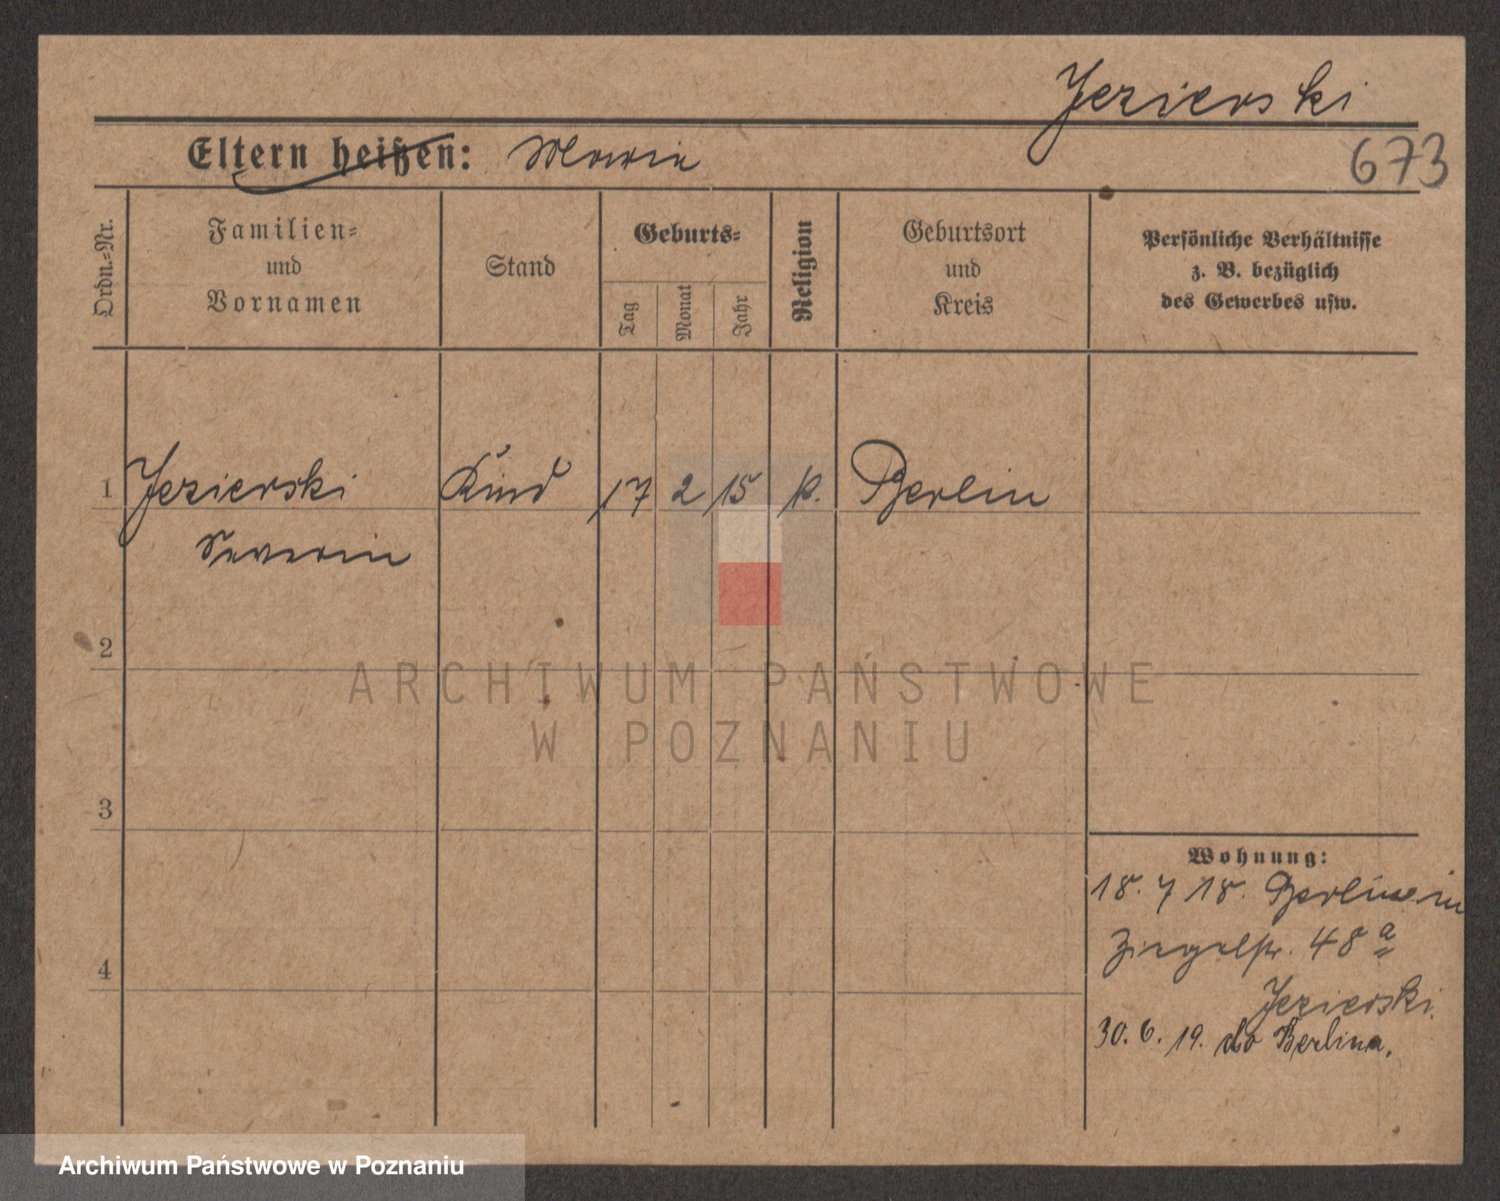 Jezierski
Eltern heißen: Maria
673
Ordn.-Nr.
Familien-
und
Vornamen
Stand
Geburts-
Tag
Monat
Jahr
Religion
Geburtsort
und
Kreis
Persönliche Verhältnisse
z. B. bezüglich
des Gewerbes usw.
1 Jezierski Kind 17 2 15 k. Berlin
Severin
2
ARCHIWUM PAŃSTWOWE
W POZNANIU
3
Wohnung:
18. 7 18. Berlin
Ziegelstr. 48 a
4
Jezierski.
30. 6. 19. do Berlina.
Archiwum Państwowe w Poznaniu